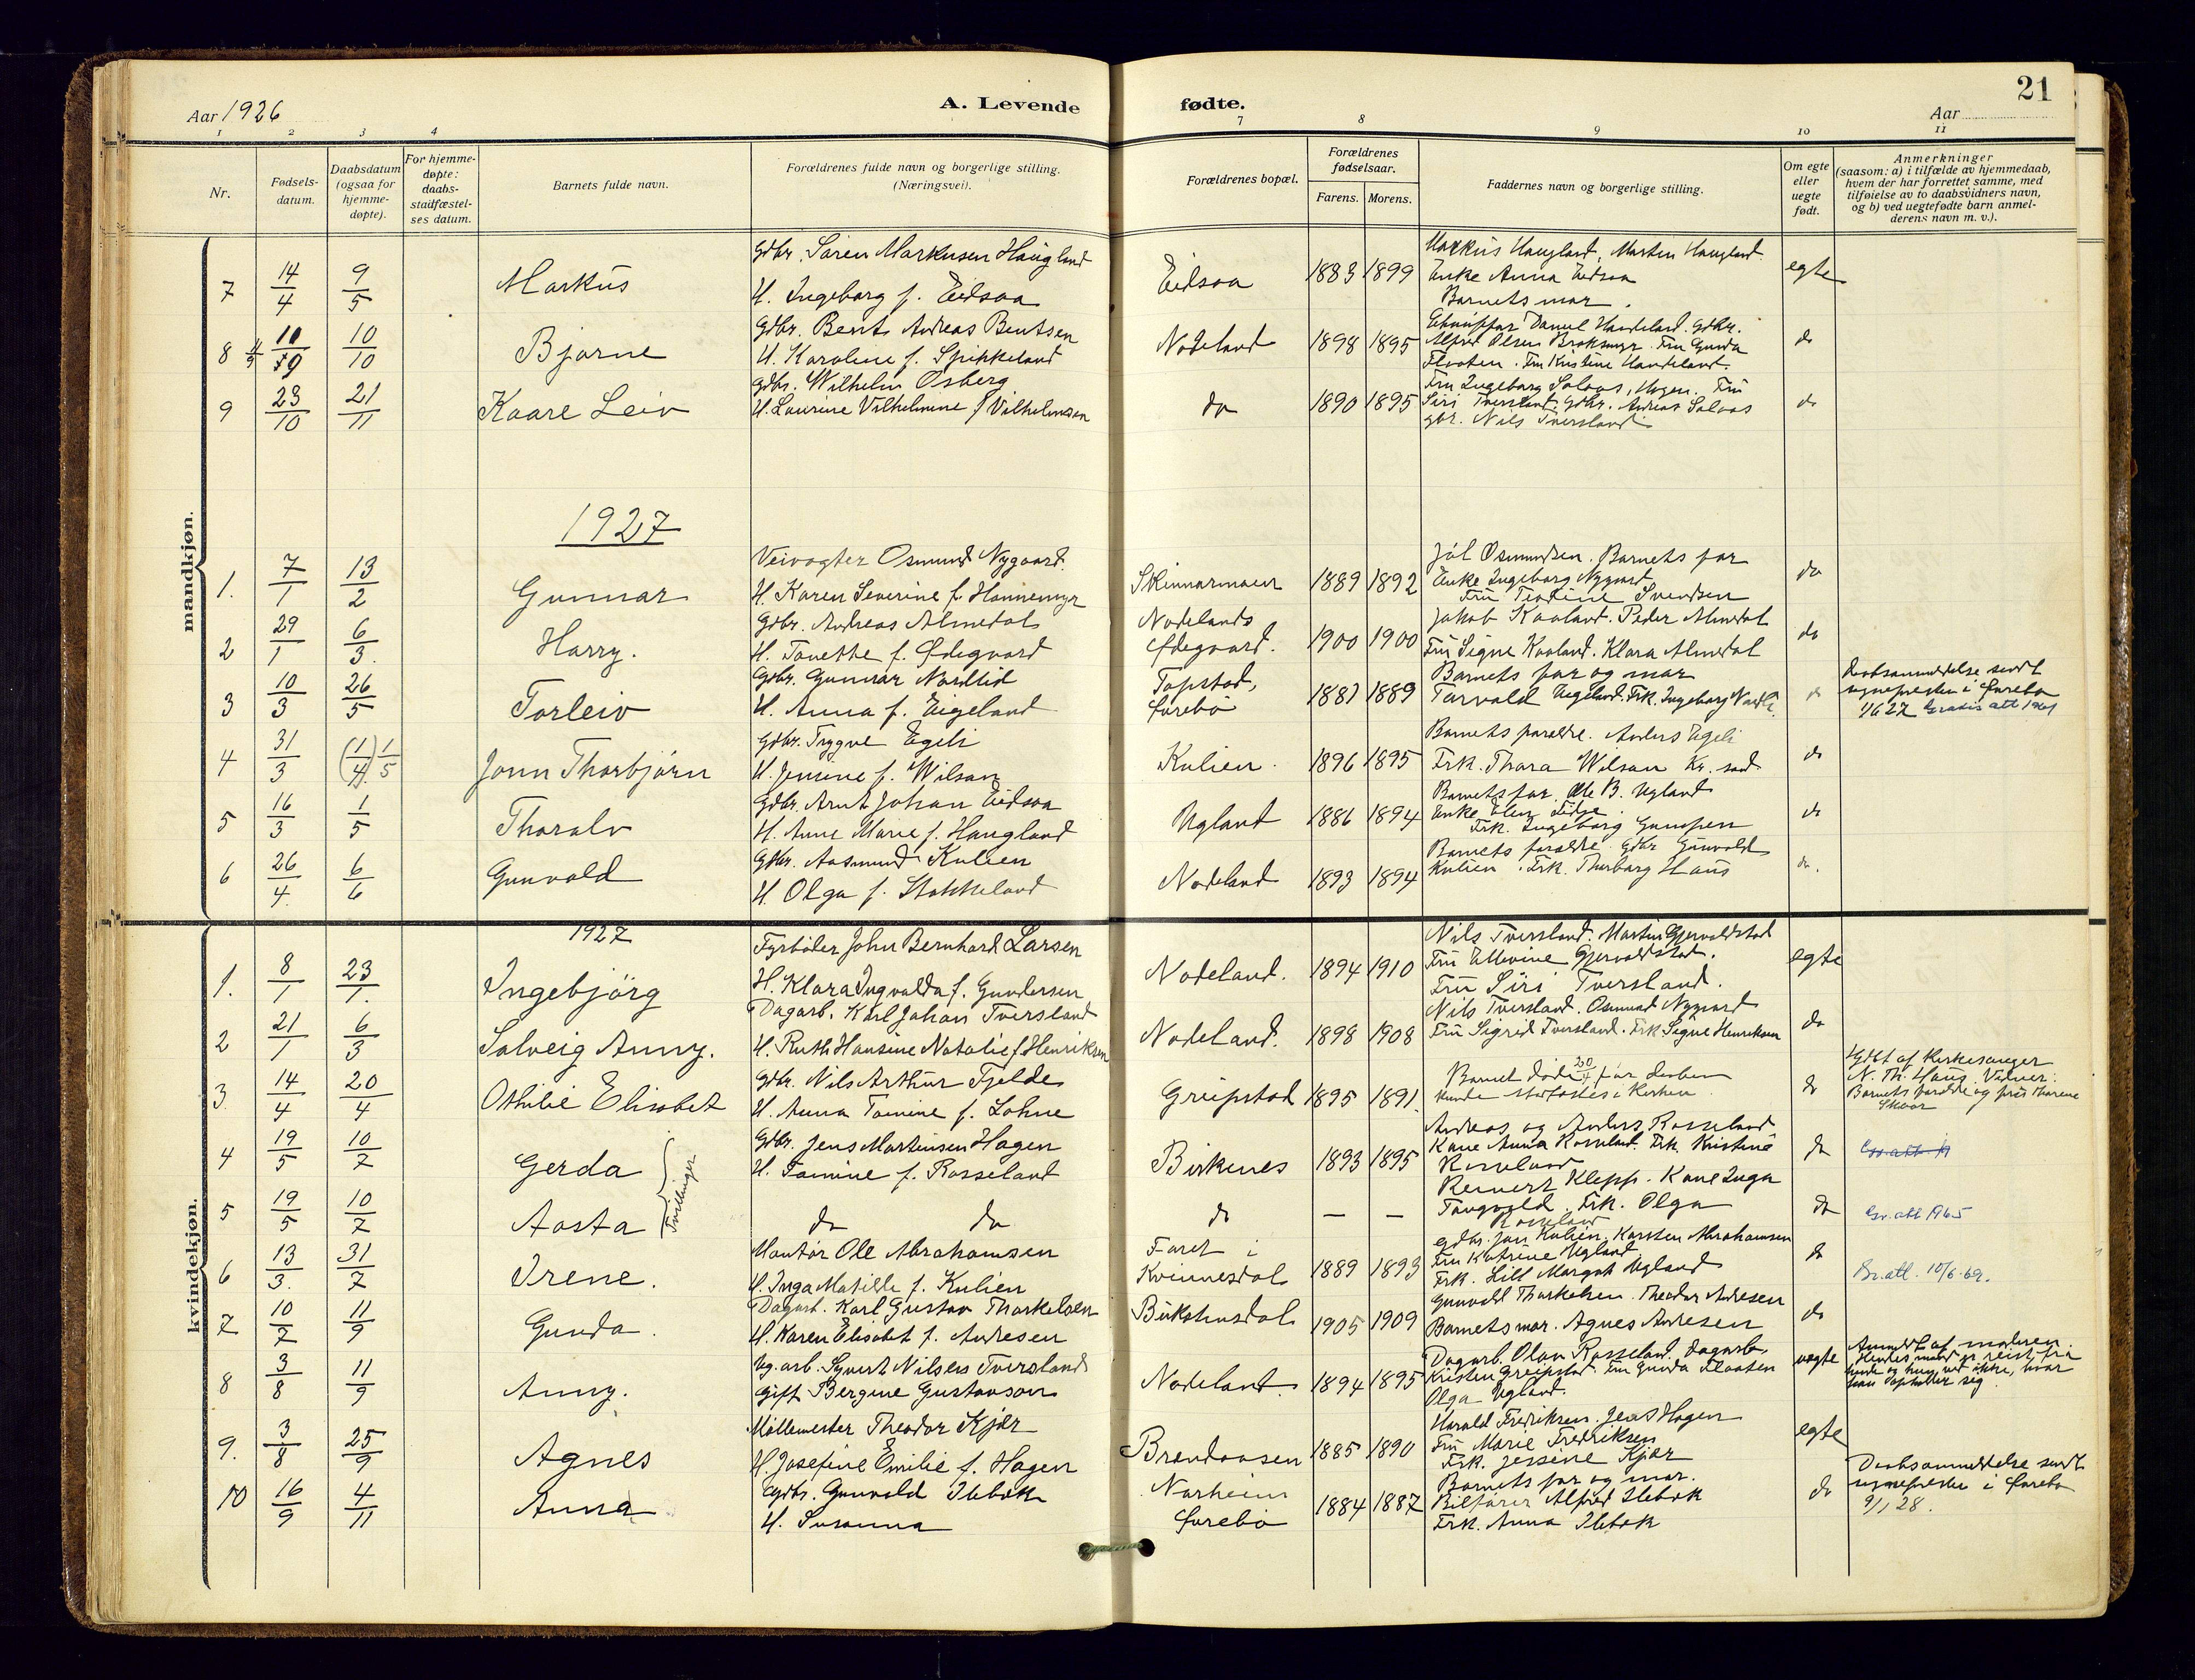 21
Aar 1926
A. Levende fødte.
Aar
1 2 3 4 7 8 9 10 11
Nr.
Fødsels-
datum.
Daabsdatum
(ogsaa for
hjemme-
døpte).
For hjemme-
døpte:
daabs-
stadfæstel-
ses datum.
Barnets fulde navn.
Forældrenes fulde navn og borgerlige stilling.
(Næringsvei).
Forældrenes bopæl.
Forældrenes
fødselsaar.
Farens. Morens.
Faddernes navn og borgerlige stilling.
Om egte
eller
uegte
født.
Anmerkninger
(saasom: a) i tilfælde av hjemmedaab,
hvem der har forrettet samme, med
tilføielse av to daabsvidners navn,
og b) ved uegtefødte barn anmel-
derens navn m. v.).
mandkjøn.
7 14/4 9/5 Markus
Gdbr. Søren Markusen Haugland
H. Ingeborg f. Eidsaa
Eidsaa 1883 1899
Markus Haugland, Martin Haugland
Enke Anna Eidsaa
Barnets mor.
egte
8 10/10 Bjarne
Gdbr. Bent Andreas Bentsen
H. Karoline f. Spikkeland
Nodeland 1898 1895
Daniel Handeland. Gdbr.
Alfred Olsen Broksmyr. Fru Gunda
Flaaten. Fru Kristine Handeland.
do
9 23/10 21/11 Kaare Leiv
Gdbr. Wilhelm Osberg
H. Laurine Vilhelmine f. Vilhelmsen
do 1890 1895
Fru Ingeborg Solaas, Hagen. Fru
Siri Tversland, Gdbr. Andreas Solaas
gbr. Nils Tversland
do
1927
1. 7/1 13/2 Gunnar
Veivogter Osmund Nygaard.
H. Karen Severine f. Hannemyr
Skinnarmoen 1889 1892
Joh Osmundsen. Barnets far
Enke Ingeborg Nygaard
Fru Teodine Svendsen
do
2 29/1 6/3. Harry.
Gdbr. Andreas Almedal
H. Tonette f. Ødegaard
Nodelands
Ødegaard. 1900 1900
Jakob Kaaland. Peder Almedal
Fru Signe Kaaland. Klara Almedal
do
3 10/3 26/5 Torleiv
Gdbr. Gunnar Nordlid
H. Anna f. Eigeland
Topstad,
Øvrebø 1881 1889
Barnets far og mor
Torvald Eigeland. Frk. Ingeborg Nordli.
do
Daabsanmeldelse sendt
sogneprest i Øvrebø
1/6 27 Gratis att 1961
4 31/3 (1/4) 1/5 Jonn Thorbjørn
Gdbr. Trygve Egeli
H. Jensine f. Wilson
Kulien. 1896 1895
Barnets forældre. Anders Egeli
Frk. Thora Wilson Kr. sand
do
5 16/3 1/5 Thoralv
Gdbr. Arnt Johan Eidsaa
H. Anne Marie f. Haugland
Ugland 1886 1894
Barnets far, Ole B. Ugland
Enke Elen Eidsaa
Frk. Ingeborg Gumpen
do
6 26/4. 6/6 Gunvald
Gdbr. Aasmund Kulien
H. Olga f. Stokkeland
Nodeland 1893 1894
Barnets forældre. Gdbr Gunvald
Kulien. Frk. Thorborg Haus
do.
kvindekjøn.
1927
1. 8/1 23/1. Ingebjörg
Fyrbøter John Bernhard Larsen
H. Klara Ingvalda f. Gundersen
Nodeland. 1894 1910
Nils Tversland. Martin Gjervoldstad
Fru Ellevine Gjervoldstad.
Fru Siri Tversland.
egte
2 21/1 6/3 Solveig Anny.
Dagarb. Karl Johan Tversland
H. Ruth Hansine Natalie f. Henriksen
Nodeland. 1898 1908
Nils Tversland. Osmund Nygaard
Fru Sigrid Tversland. Frk Signe Henriksen
do
3 14/4 20/4 Othilie Elisabet
Gdbr. Nils Arthur Fjelde
H. Anna Tomine f. Lohne
Greipstad 1895 1891.
Barnet døde 20/4 før daaben
kunde stadfæstes i Kirken.
do
Hjdbt af Kirkesanger
N. Th. Haus. Vidner:
Barnets forældre og frøk Thorene
Skaar
4 19/5 10/7 Gerda
Tvillinger
Gdbr. Jens Martinsen Hagen
H. Tomine f. Rosseland
Birkenes 1893 1895
Andreas og Anders Rosseland
Kone Anna Rosseland. Frk. Kristine
Rosseland
do
5 19/5 10/7 Aasta
do do
do — —
Reinert Klepp. Kone Inga
Tangvald. Frk. Olga
Rosseland
do
Gr. att 1965
6 13/3. 31/7 Irene.
Montør Ole Abrahamsen
H. Inga Matilde f. Kulien
Faret i
Kvinnesdal 1889 1893
Gdbr. Jon Kulien. Karsten Abrahamsen
Fru Katrine Ugland
Frk. Lill Margot Ugland
do
Gr. att. 10/6-69.
7 10/7 11/9 Gunda.
Dagarb. Karl Gustav Thorkelsen
H. Karen Elisabet f. Andresen
Bukstensdal 1905 1909
Gunvald Thorkelsen. Theodor Andresen
Barnets mor. Agnes Andresen
do
8 3/8 11/9 Anny.
Ug. arb. Syvert Nilsen Tversland
Gift Bergine Gustavson
Nodeland. 1894 1895
Dagarb. Olav Rosseland, dagarb.
Kristen Greipstad. Fru Gunda Flaaten
Olga Ugland.
uegte
Anmeldt af moderen.
Hendes mand er reist fra
hende og hun ved ikke, hvor
han opholder sig.
9. 3/8 25/9 Agnes
Møllemester Theodor Kjær
H. Josefine Emilie f. Hagen
Brandaasen 1885 1890
Harald Fredriksen. Jens Hagen
Fru Marie Fredriksen
Frk. Jessine Kjær
egte
10 16/9 4/11 Anna
Gdbr. Gunvald Ilebæk
H. Susanna
Norheim
Øvrebø 1884 1887
Barnets far og mor.
Bilfører Alfred Ilebæk
Frk. Anna Ilebæk
do
Daabsanmeldelse sendt
sognepresten i Øvrebø
9/1 28.